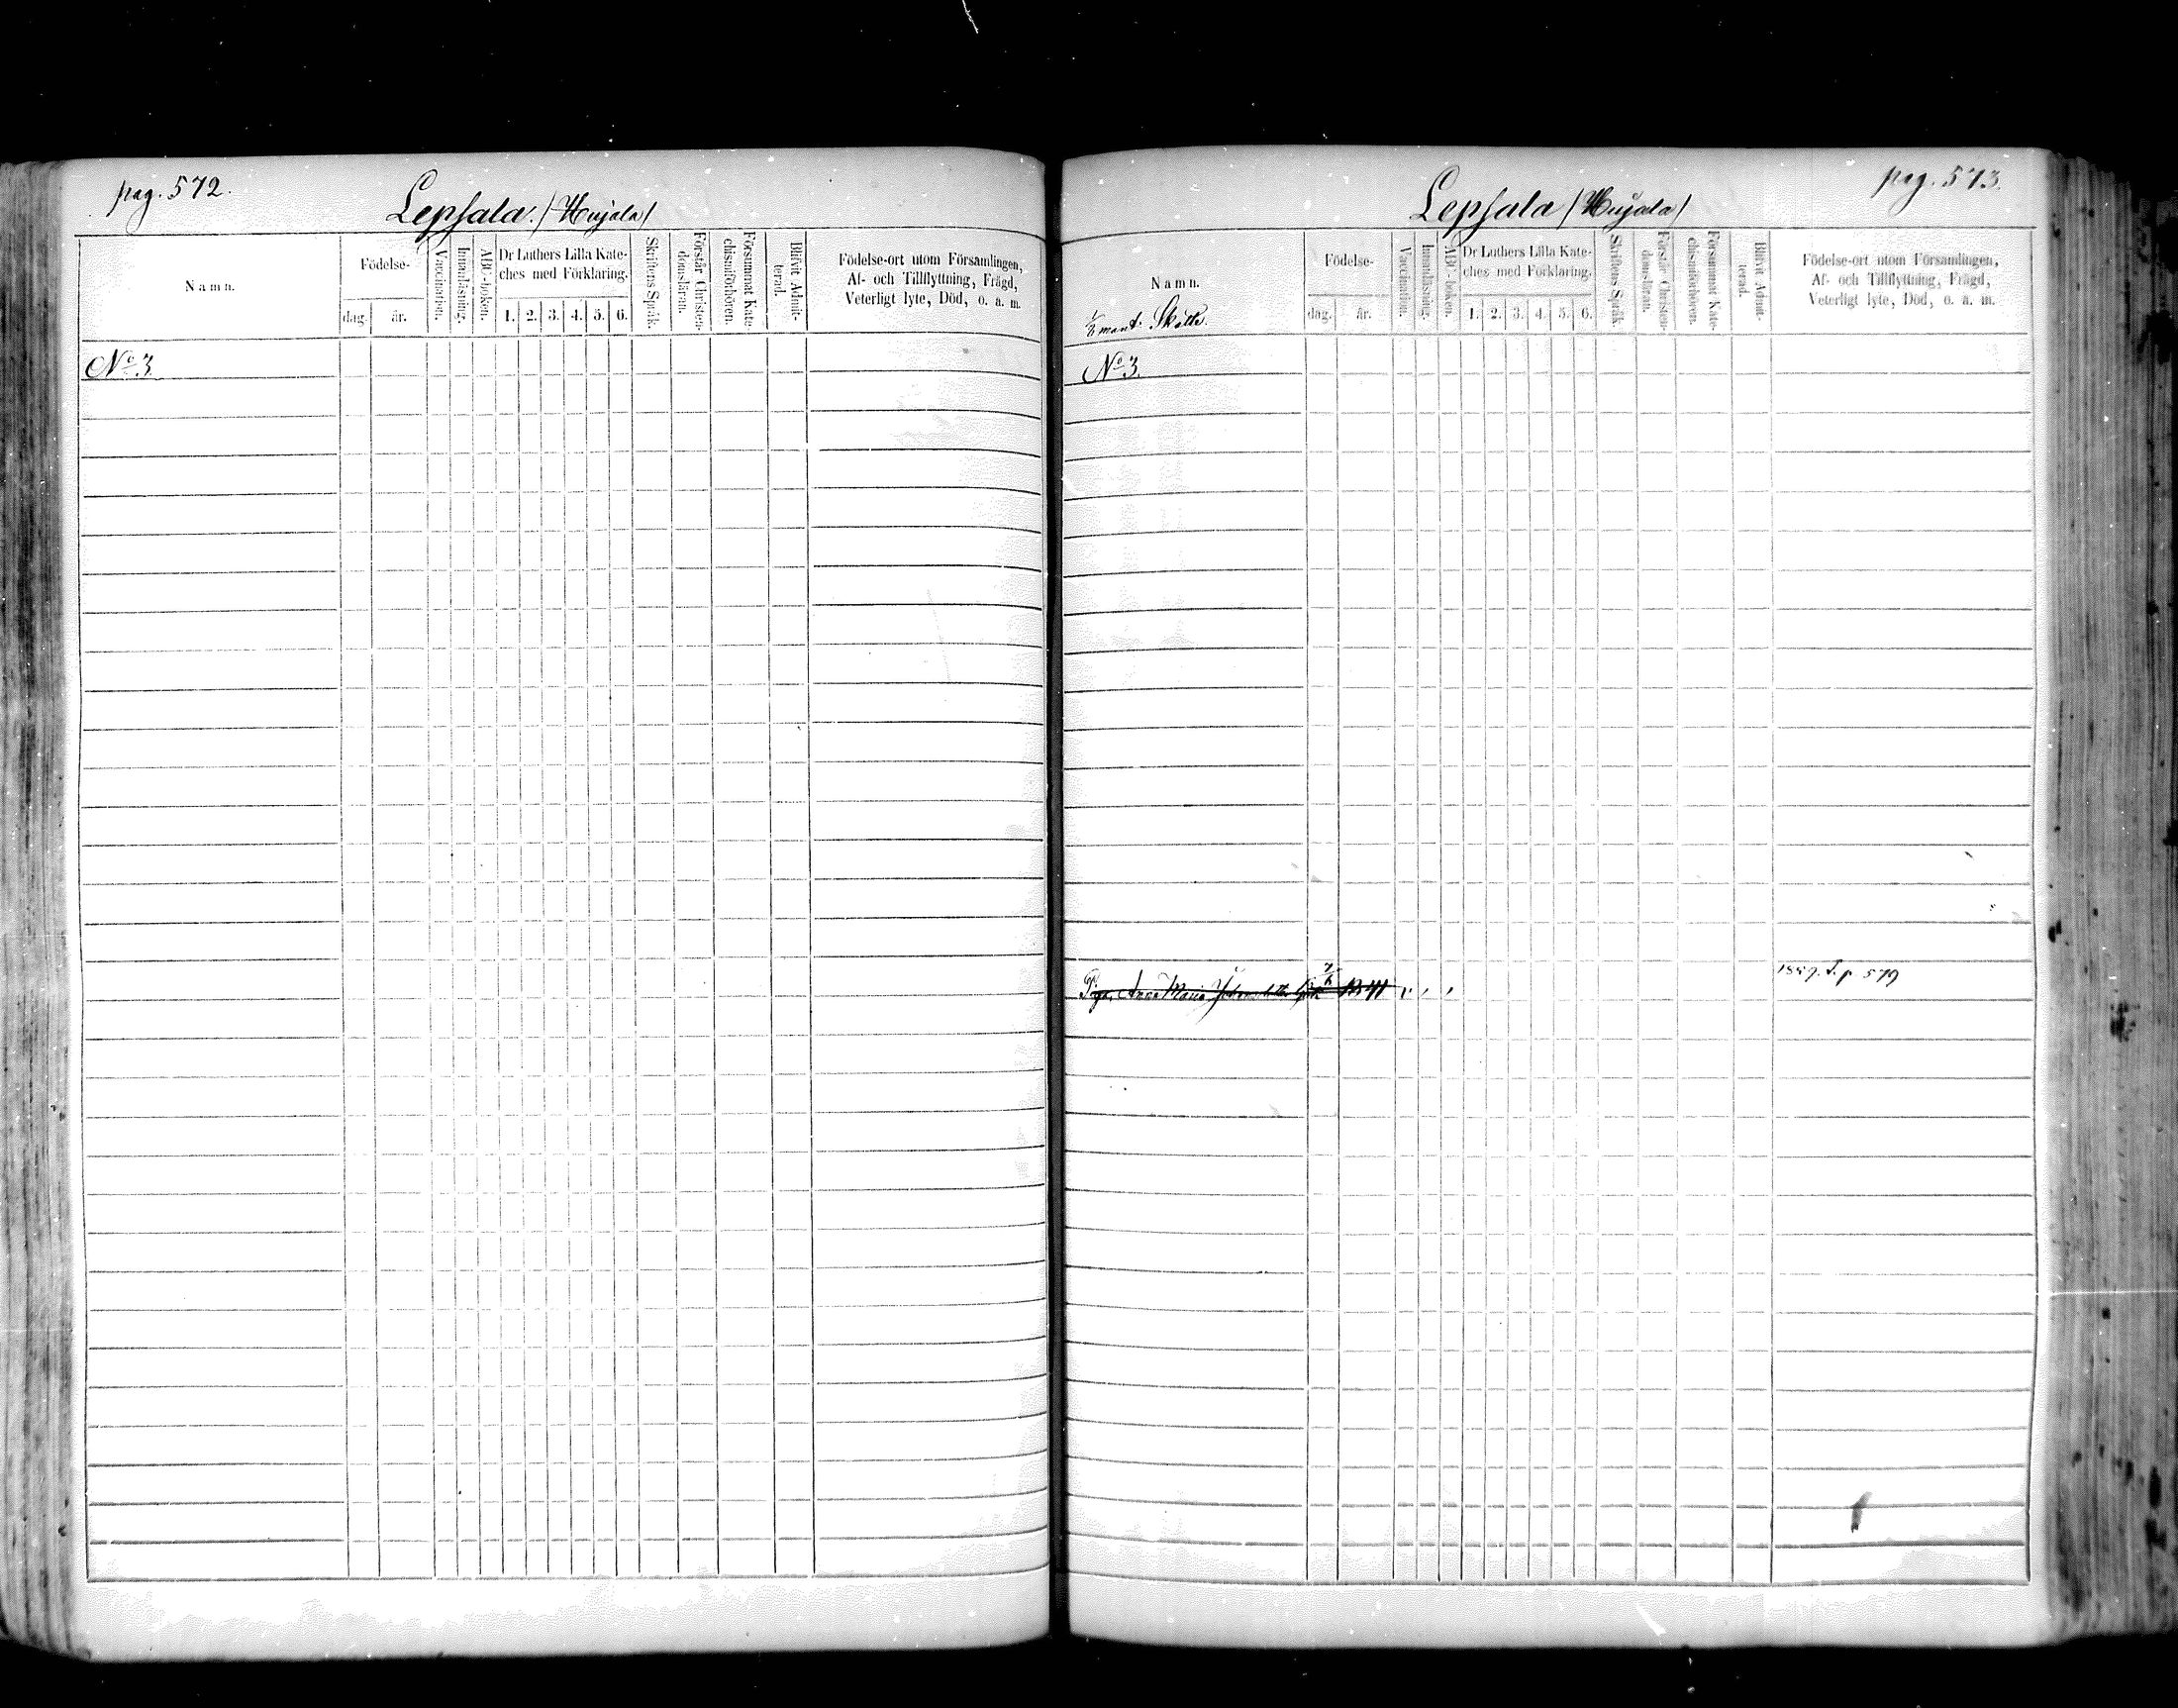 pag. 572.
Lepsala. /Hujala/
Namn.
Födelse-
dag.
år.
Vaccination.
Innanläsning.
ABC-boken.
Dr Luthers Lilla Kate-
ches med Förklaring.
1. 2. 3. 4. 5. 6.
Skriftens Språk.
Förstår Christen-
domsläran.
Försummat Kate-
chismiförhören.
Blifvit Admit-
terad.
Födelse-ort utom Församlingen,
Af- och Tillflyttning, Frägd,
Veterligt lyte, Död, o. a. m.
No 3
pag. 573.
Lepsala /Hujala/
Namn.
mant. Skatte.
Födelse-
dag.
år.
Vaccination.
Innanläsning.
ABC-boken.
Dr Luthers Lilla Kate-
ches med Förklaring.
1. 2. 3. 4. 5. 6.
Skriftens Språk.
Förstår Christen-
domsläran.
Försummat Kate-
chismiförhören.
Blifvit Admit-
terad.
Födelse-ort utom Församlingen,
Af- och Tillflyttning, Frägd,
Veterligt lyte, Död, o. a. m.
No 3.
Piga Anna Maria